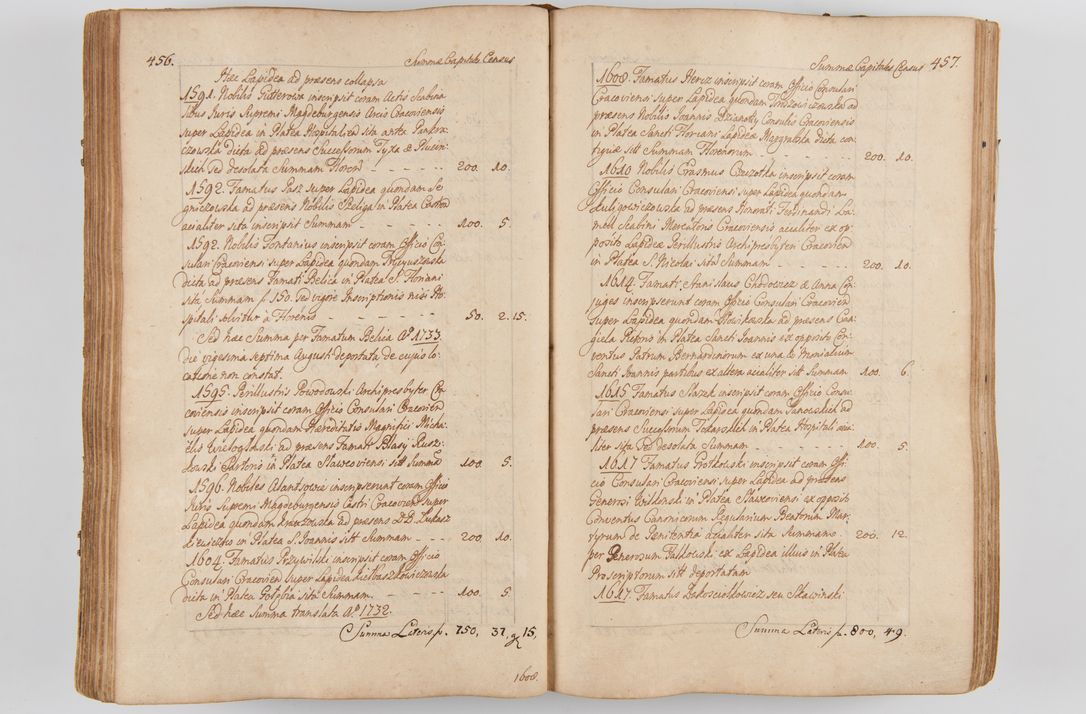 456. Summæ Capitales Census
Hæc Lapidea ad præsens collapsa
1591. Nobilis Gutterowa inscripsit coram Actis Scabina
libus Juris Supremi Magdeburgensis Arcis Cracoviensis
super Lapidea in Platea Hospitali sita ante
dicta ad præsens Successorum Tyxa &
Sed desolata Summam Floren 200. 10.
1592. Famatus Pasz super Lapidea quondam Se
ad præsens Nobilis Beliga in Platea Castra
acialiter sita inscripsit Summam 100. 5.
1592. Nobilis Fontanius inscripsit coram Officio Con
sulari Cracoviensi super Lapidea quondam
dicta ad præsens Famati Belica in Platea S. Floriani
sitt Summam f. 150. Sed vigore Inscriptionis nisi Ho
spitali solvitur a Florenis 50. 2. 15.
Sed hæc Summa per Famatum Belica Aº 1733.
die vigesima Septima Augusti deportata de cujus lo
catione non constat.
1595. Perillustris Powodowski Archipresbyter Cra
coviensis inscripsit coram Officio Consulari Cracovien
super Lapidea quondam Hæreditatis Magnifici Micha
elis Wielogłowski ad præsens Famati Blasij Rusz
kowski Sartoris in Platea Slawcoviensi sitt Summã 100. 5.
1596. Nobiles inscripserunt coram Officio
Juris Supremi Magdeburgensis Castri Cracovien super
Lapidea quondam ad præsens DD. Lukasz
in Platea S. Joannis sitt Summam 200. 10.
1604. Famatus Przywilski inscripsit coram Officio
Consulari Cracovien Super Lapidea
dicta in Platea Gołębia sita Summam. 100. 5.
Sed hæc Summa translata Aº 1732.
Summa Lateris f. 750, 37, g 15,
1608.
Summæ Capitales Census 457.
1608. Famatus Hercz inscripsit coram Officio Consulari
Cracoviensi super Lapidea quondam ad
præsens Nobilis Joannis Dzianotty Consulis Cracoviensis
in Platea Sancti Floriani Lapidea dicta con
tiguæ sitt Summam Florenorum 200. 10.
1610 Nobilis Erasmus Czeczotka inscripsit coram
Officio Consulari Cracoviensi super Lapidea quondam
ad præsens Honorati Ferdinandi La
meli Scabini Mercatoris Cracoviensis acialiter ex op
posito Lapideæ Perillustris Archipresbyteri Cracovien
in Platea S. Nicolai sitt Summam 200. 10.
1614. Famati Stanislaus Chodowicz & Anna Con
juges inscripserunt coram Officio Consulari Cracovien
super Lapidea quondam Słowikowska ad præsens Cau
giela Pictoris in Platea Sancti Joannis ex opposito Con
ventus Patrum Bernardinorum ex una & Monialium
Sancti Joannis partibus ex altera acialiter sitt Summam 100. 6.
1615 Famatus Slazek inscripsit coram Officio Consu
lari Cracoviensi super Lapidea quondam Janoskich ad
præsens Successorum in Platea Hospitali acia
liter sita Sed desolata Summam 100. 5.
1617 Famatus Protkowski inscripsit coram Offi
cio Consulari Cracoviensi super Lapidea ad præsens
Generosi Wilkonski in Platea Slawcoviensi ex opposito
Conventus Canonicorum Regularium Beatorum Mar
tyrum de Penitentia acialiter sita Summam. 200. 12.
per Generosum Falkowski ex Lapidea illius in Platea
Proscriptorum sitt deportatam
1617. Famatus Zakosciołkowicz seu Skawinski
Summa Lateris f. 800, 49.